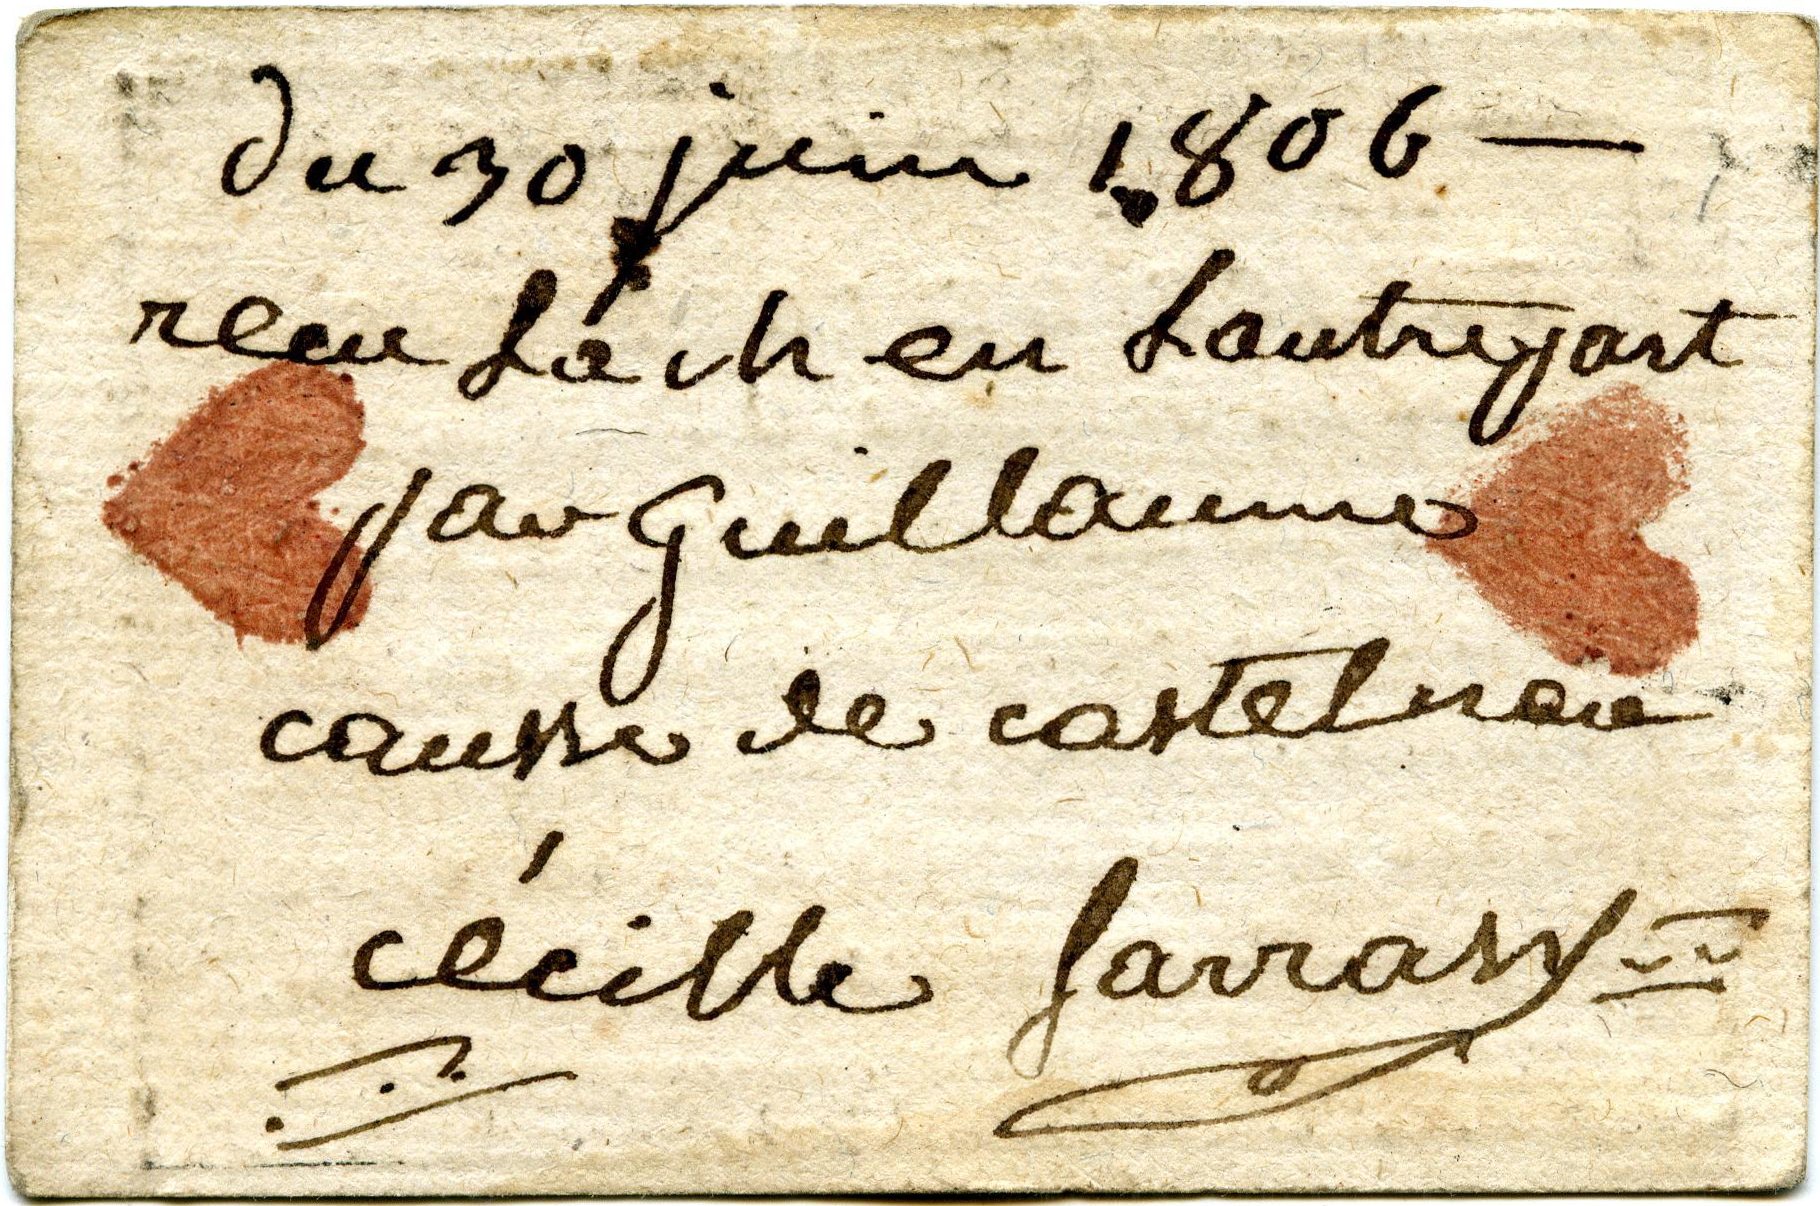 du 30 juin 1806 —
recu en Lautrepart
par Guillaume
causse de castelnau
cécille Sarrasy